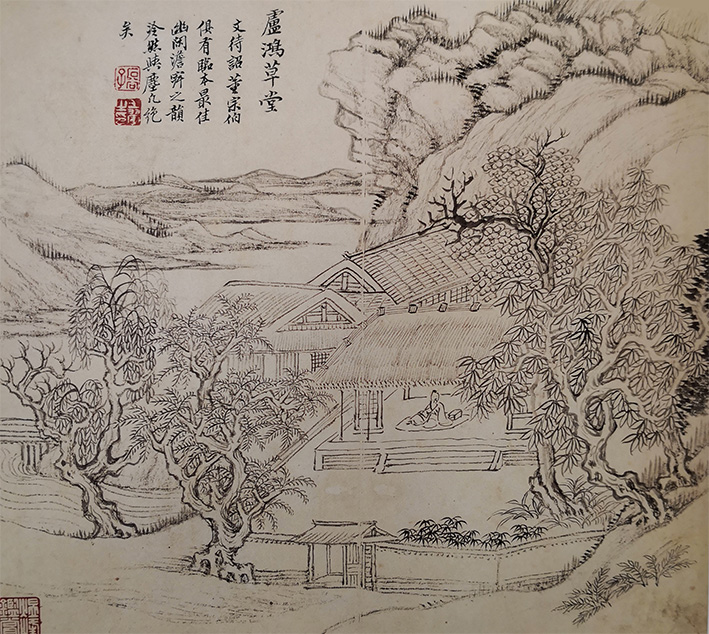 盧鴻草堂
文待詔董宗伯
俱有臨本最佳
幽閒澹野之韻
泠然塵凡絶
矣